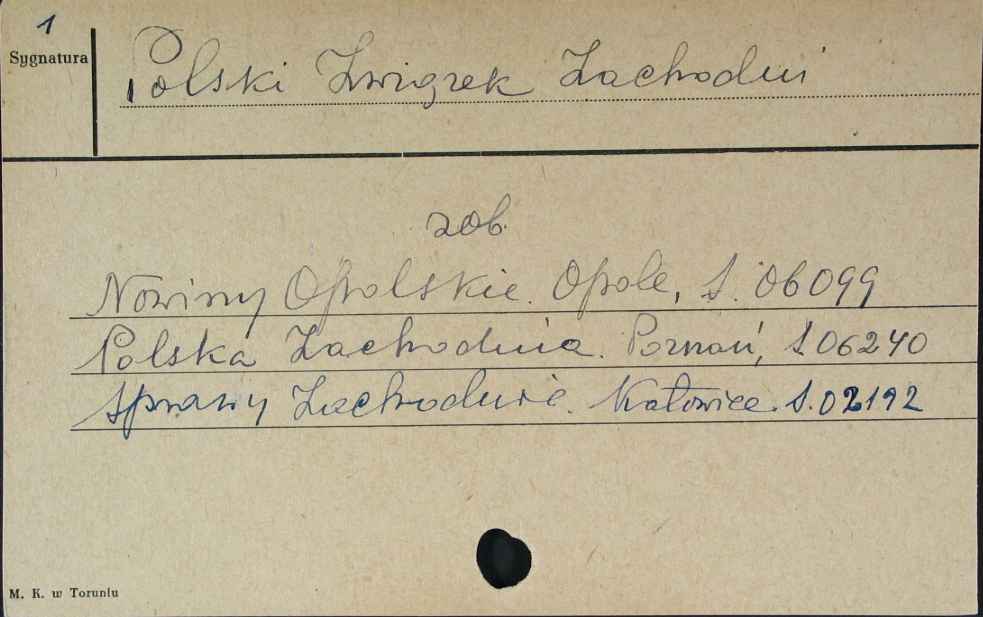 1
Sygnatura
Polski Związek Zachodni
zob.
Nowiny Opolskie. Opole, S. 06099
Polska Zachodnia. Poznań, S. 06240
Sprawy Zachodnie. Katowice. S. 02192
M. K. w Toruniu